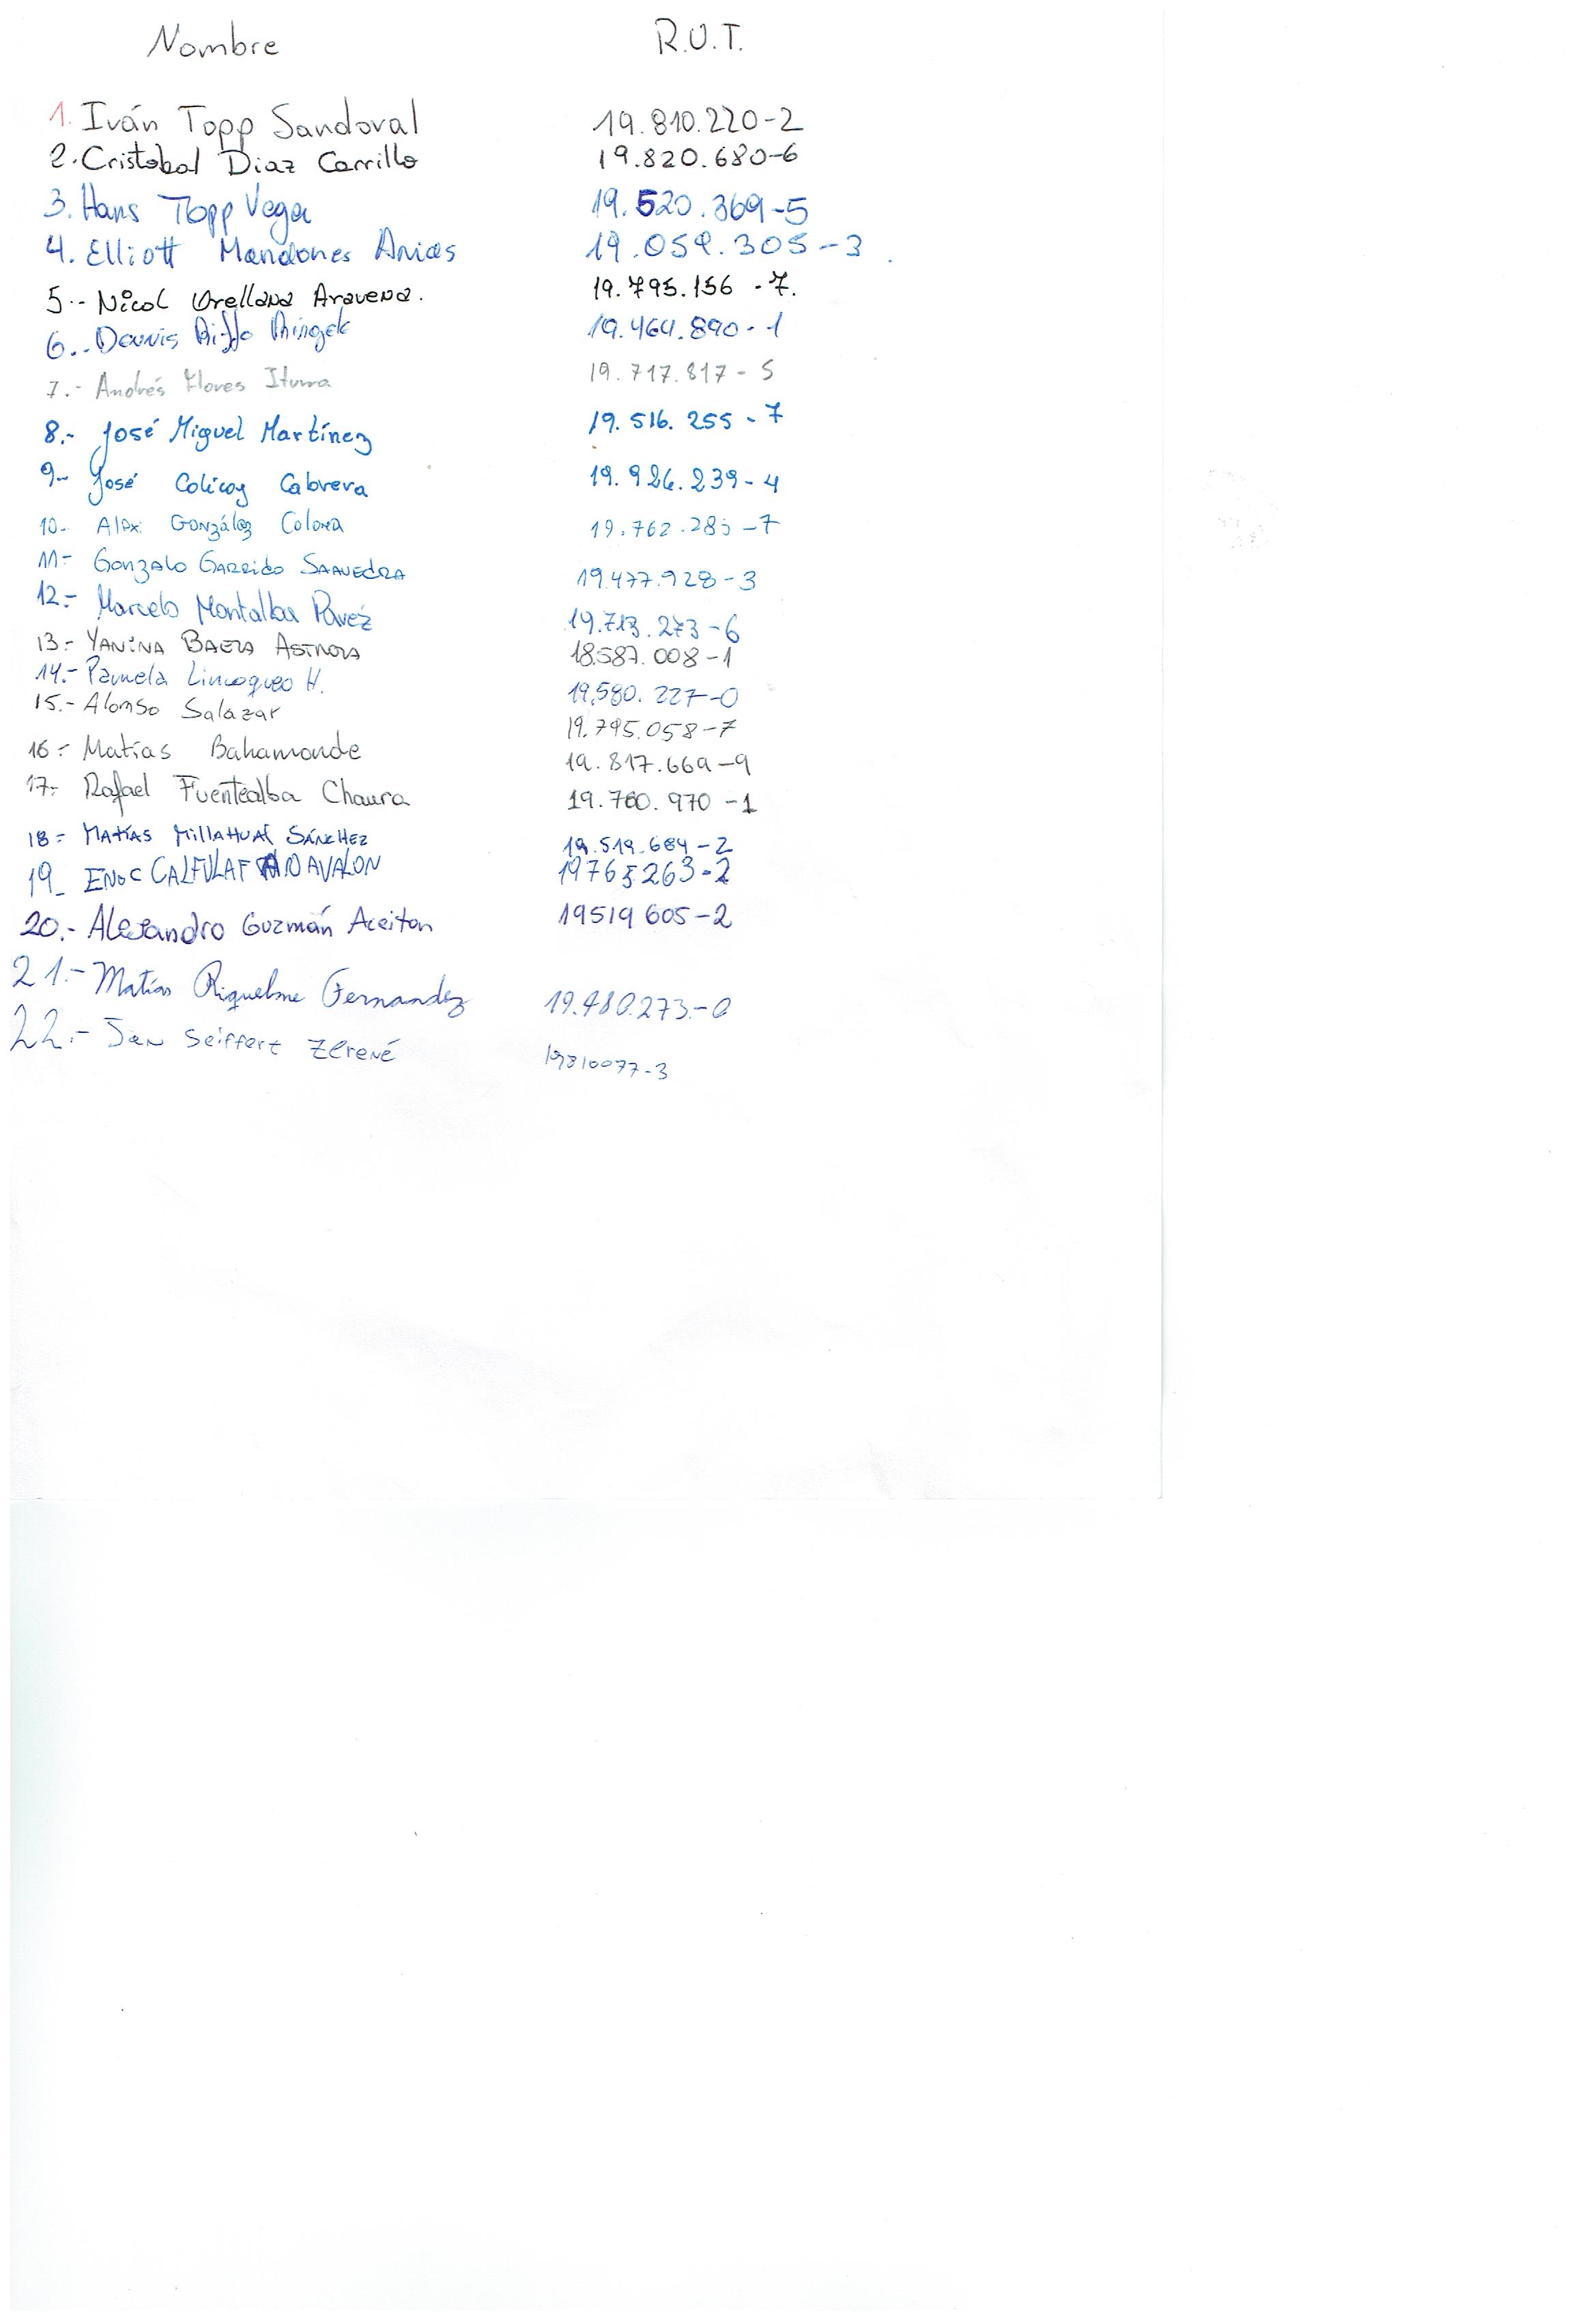 Nombre R.U.T.
1. Iván Topp Sandoval 19.810.220-2
2. Cristobal Diaz Carrillo 19.820.680-6
3. Hans Topp Vega 19.520.369-5
4. Elliott Mardones Arias 19.059.305-3
5.- Nicol Orellana Aravena. 19.795.156-7.
6.- Dennis Riffo 19.464.890-1
7.- Andrés Flores Iturra 19.717.817-5
8.- José Miguel Martínez 19.516.255-7
9- José Colicoy Cabrera 19.926.239-4
10- Alex González Coloma
11- Gonzalo Garrido Saavedra 19.477.928-3
12.- Marcelo Montalba Pavez 19.713.273-6
13.- Yanina Baeza 18.587.008-1
14.- Pamela Lincoqueo H. 19.580.227-0
15.- Alonso Salazar 19.795.058-7
16.- Matías Bahamonde 19.817.669-9
17.- Rafael Fuentealba Chaura 19.760.970-1
18.- MATÍAS MILLAHUAL SÁNCHEZ 19.519.684-2
19_ ENOC CALFULAF 19765263-2
20.- Alejandro Guzmán Aceiton 19519605-2
21.- Matías Riquelme Fernandez 19.480.273-0
22.- Jan Seiffert Zerené 19810077-3